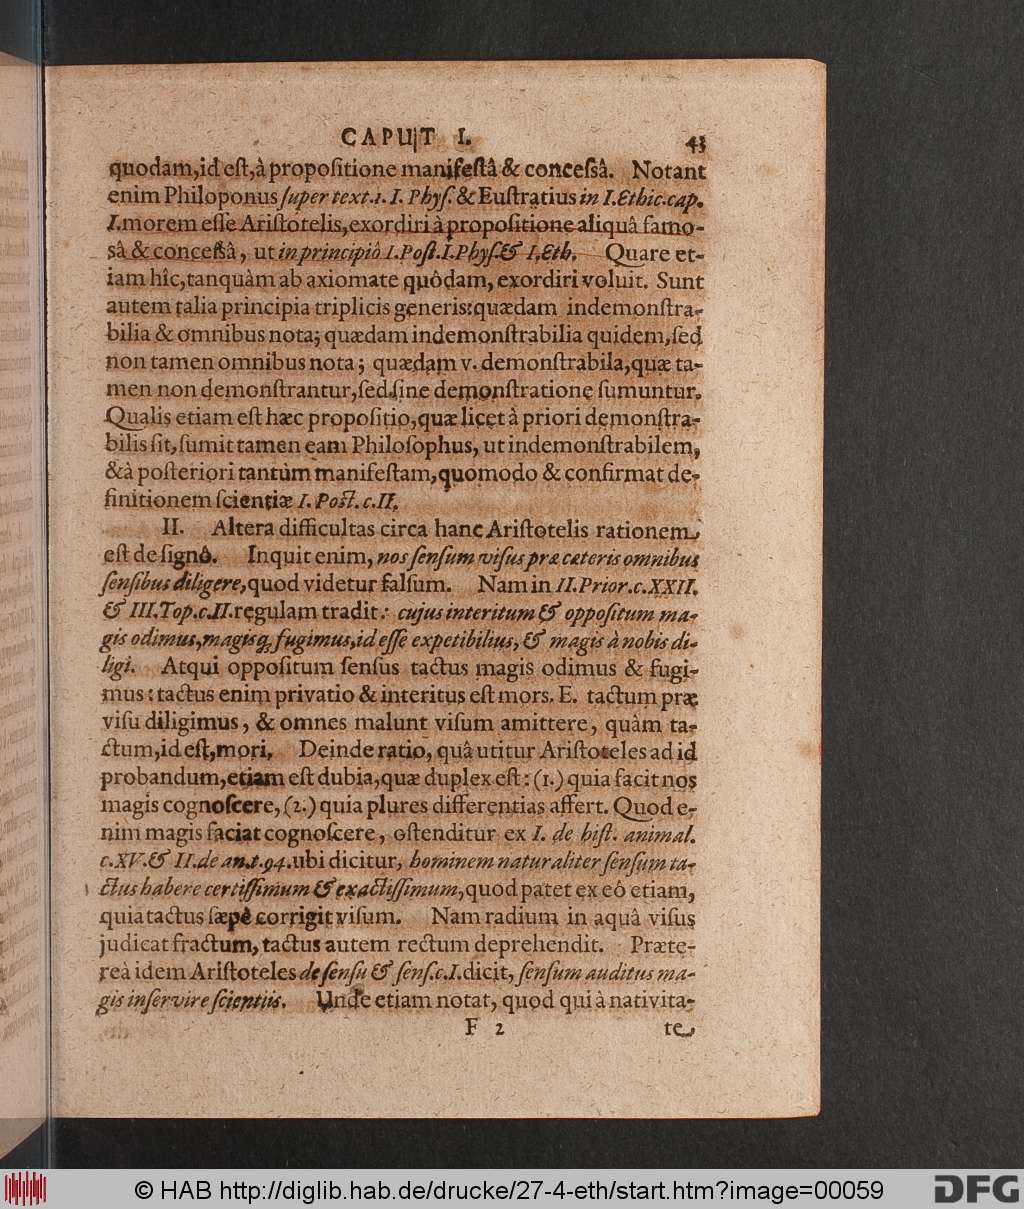 CAPUT I. 43
quodam, id eſt, à propoſitione manifeſtâ & conceſsâ. Notant
enim Philoponus ſuper text. 1. I. Phyſ. & Euſtratius in I. Ethic. cap.
I. morem eſſe Ariſtotelis, exordiri à propoſitione aliquâ famo-
sâ & conceſsâ, ut in principiô I. Poſt. I. Phyſ. & I. Eth. Quare et-
iam hîc, tanquàm ab axiomate quôdam, exordiri voluit. Sunt
autem talia principia triplicis generis: quædam indemonſtra-
bilia & omnibus nota; quædam indemonſtrabilia quidem, ſed
non tamen omnibus nota; quædam v. demonſtrabila, quæ ta-
men non demonſtrantur, ſed ſine demonſtratione ſumuntur.
Qualis etiam eſt hæc propoſitio, quæ licet à priori demonſtra-
bilis ſit, ſumit tamen eam Philoſophus, ut indemonſtrabilem,
& à poſteriori tantùm manifeſtam, quomodo & confirmat de-
finitionem ſcientiæ I. Poſt. c. II.
II. Altera difficultas circa hanc Ariſtotelis rationem
eſt de ſignô. Inquit enim, nos ſenſum viſus præ cæteris omnibus
ſenſibus diligere, quod videtur falſum. Nam in II. Prior. c. XXII.
& III. Top. c. II. regulam tradit: cujus interitum & oppoſitum ma-
gis odimus, magisq; fugimus, id eſſe expetibilius, & magis à nobis di-
ligi. Atqui oppoſitum ſenſus tactus magis odimus & fugi-
mus: tactus enim privatio & interitus eſt mors. E. tactum præ
viſu diligimus, & omnes malunt viſum amittere, quàm ta-
ctum, id eſt, mori. Deinde ratio, quâ utitur Ariſtoteles ad id
probandum, etiam eſt dubia, quæ duplex eſt: (1.) quia facit nos
magis cognoſcere, (2.) quia plures differentias affert. Quod e-
nim magis faciat cognoſcere, oſtenditur ex I. de hiſt. animal.
c. XV. & II. de an. t. 94. ubi dicitur, hominem naturaliter ſenſum ta-
ctus habere certiſſimum & exactiſſimum, quod patet ex eô etiam,
quia tactus ſæpè corrigit viſum. Nam radium in aquâ viſus
judicat fractum, tactus autem rectum deprehendit. Præte-
reà idem Ariſtoteles de ſenſu & ſenſ. c. I. dicit, ſenſum auditus ma-
gis inſervire ſcientiis. Unde etiam notat, quod qui à nativita-
F 2 te
© HAB http://diglib.hab.de/drucke/27-4-eth/start.htm?image=00059 DFG